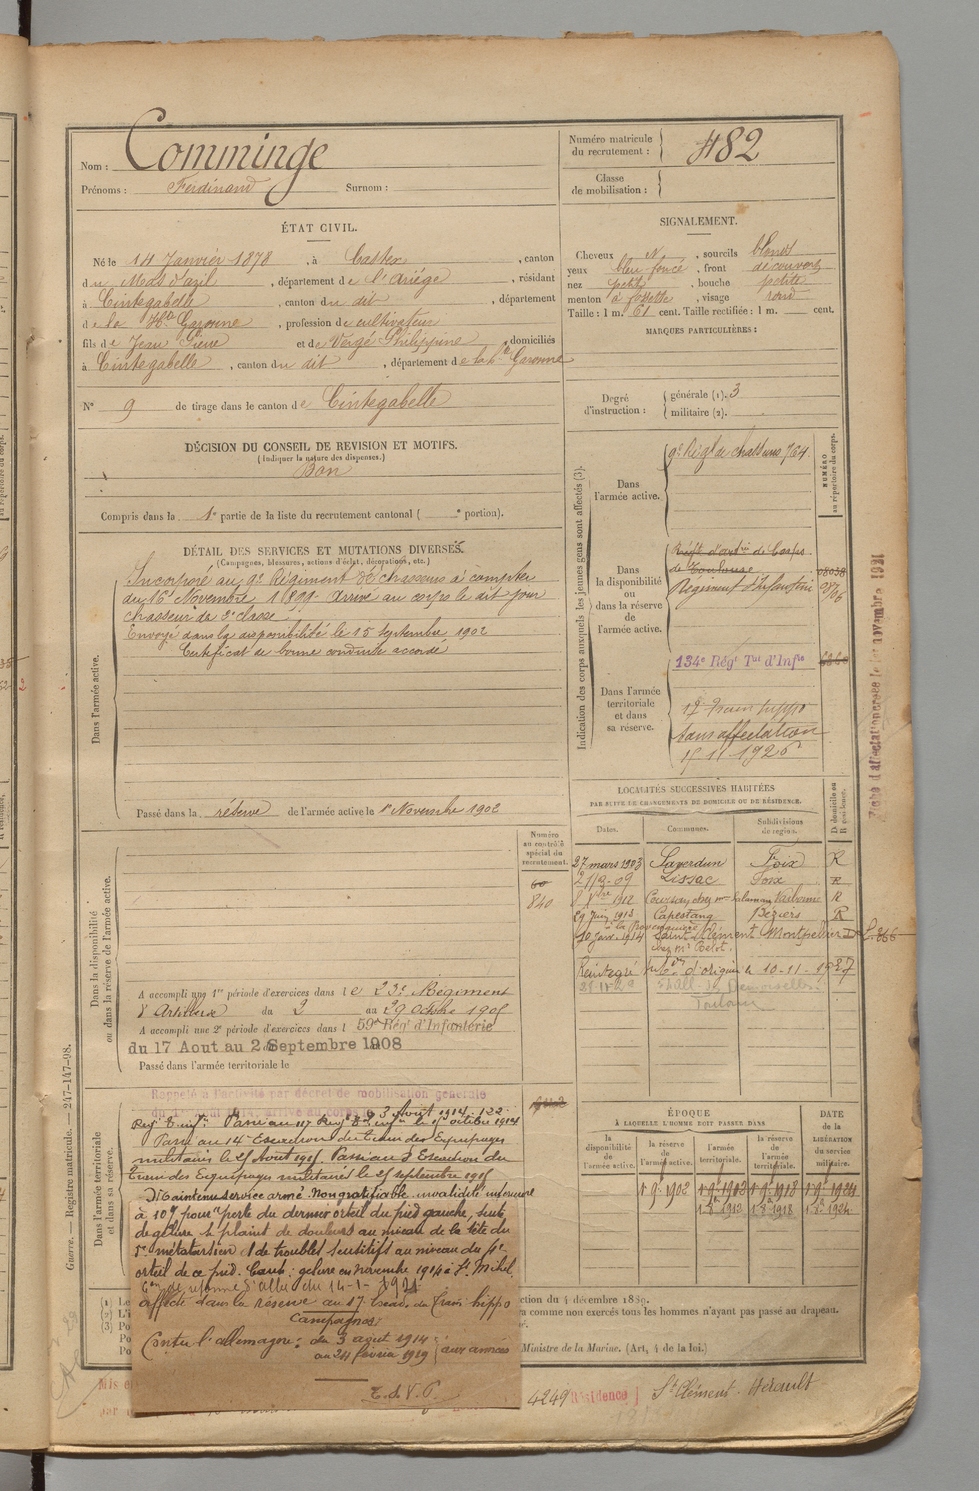 Nom : Comminge
Prénoms : Ferdinand Surnom :
Numéro matricule du recrutement : 482
Classe de mobilisation :
ÉTAT CIVIL.
Né le 14 Janvier 1878, à Castex, canton
du Mas d'azil, département de l'Ariége, résidant
à Cintegabelle, canton du dit, département
de la Hte Garonne, profession de cultivateur
fils de Jean Pierre et de Vergé Philippine, domiciliés
à Cintegabelle, canton du dit, département de la Hte Garonne
N° 9 de tirage dans le canton de Cintegabelle
SIGNALEMENT.
Cheveux N, sourcils blonds
yeux bleu foncé, front découvert
nez petit, bouche petite
menton à fossette, visage rond
Taille : 1 m. 61 cent. Taille rectifiée : 1 m. cent.
MARQUES PARTICULIÈRES :
Degré d'instruction : générale (1). 3
militaire (2).
DÉCISION DU CONSEIL DE REVISION ET MOTIFS.
(Indiquer la nature des dispenses.)
Bon
Compris dans la 1e partie de la liste du recrutement cantonal ( e portion).
DÉTAIL DES SERVICES ET MUTATIONS DIVERSES.
(Campagnes, blessures, actions d'éclat, décorations, etc.)
Dans l'armée active.
Incorporé au 9e Régiment de chasseurs à compter
du 16 Novembre 1899. Arrivé au corps le dit jour
chasseur de 2e classe.
Envoyé dans la disponibilité le 15 Septembre 1902
Certificat de bonne conduite accordé
Passé dans la réserve de l'armée active le 1er Novembre 1902
Indication des corps auxquels les jeunes gens sont affectés (3).
NUMÉRO au répertoire du corps.
Dans l'armée active.
9e Régt de chasseurs 764
Dans la disponibilité ou dans la réserve de l'armée active.
de Corps
de Toulouse
Régiment d'Infanterie
Dans l'armée territoriale et dans sa réserve.
134e Régt Tal d'Infie
17e Train hippo
Sans affectation
15-11-1926
Fiche d'affectation créée le 1er novembre 1921
LOCALITÉS SUCCESSIVES HABITÉES
PAR SUITE DE CHANGEMENTS DE DOMICILE OU DE RÉSIDENCE.
Dates. Communes. Subdivisions de région. D. domicile ou R. résidence.
27 mars 1903 Saverdun Foix R
Lissac Foix R
R
29 Juin 1913 Capestang Béziers R
10 janv. 1914 Saint Clément Montpellier
chez Mr Belot.
Réintégré d'origine le 10-11-1927
Toulouse
Numéro au contrôle spécial du recrutement.
60
840
Dans la disponibilité ou dans la réserve de l'armée active.
A accompli une 1re période d'exercices dans le 23e Régiment
d'Artillerie du 2 au 29 Octobre 1905
A accompli une 2e période d'exercices dans l 59e Régt d'Infanterie
du 17 Aout au 2 Septembre 1908
Passé dans l'armée territoriale le
Dans l'armée territoriale et dans sa réserve.
Rappelé à l'activité par décret de mobilisation générale
du 1er Août 1914, arrivé au corps le 3 Août 1914. 132e
Passé au 117 le 15 octobre 1914
Passé au 14e Escadron du Train des Equipages
militaires le 25 Aout 1915 Passé au Escadron du
Train des Equipages militaires le 25 septembre 1915
Maintenu service armé. Non gratifiable. invalidité inférieure
à 10% pour perte du dernier orteil du pied gauche, suite
de gelure se plaint de douleurs au niveau de la tête du
5e métatarsien & de troubles sensitifs au niveau du 4e
orteil de ce pied. Caus: gelure en novembre 1914 à St Mihiel.
Con de réforme S. Albi du 14-1-1921
affecté dans la réserve au 17 Escad. du Train hippo
Campagnes:
Contre l'allemagne: du 3 aout 1914
au 24 février 1919 aux armées
T.S.V.P.
ÉPOQUE
À LAQUELLE L'HOMME DOIT PASSER DANS
la disponibilité de l'armée active. la réserve de l'armée active. l'armée territoriale. la réserve de l'armée territoriale. DATE de la LIBÉRATION du service militaire.
1 9e 1902 1 9e 1903 1 9e 1918 1 9e 1924
1 1912 1 1918 1 1924
ction du 4 décembre 1889.
ra comme non exercés tous les hommes n'ayant pas passé au drapeau.
Ministre de la Marine. (Art, 4 de la loi.)
Guerre. — Registre matricule. — 247-147-98.
4249 Résidence St Clément. Hérault